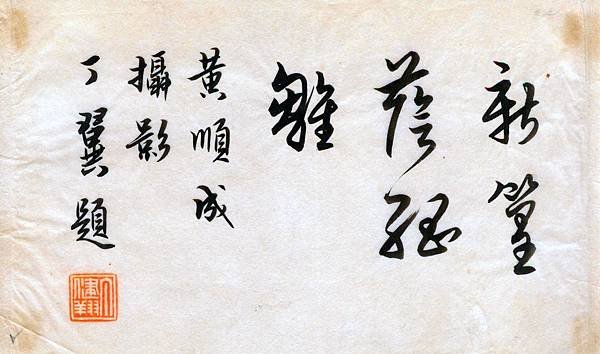 新篁
蔭
雛
黃順成
攝影
丁翼題